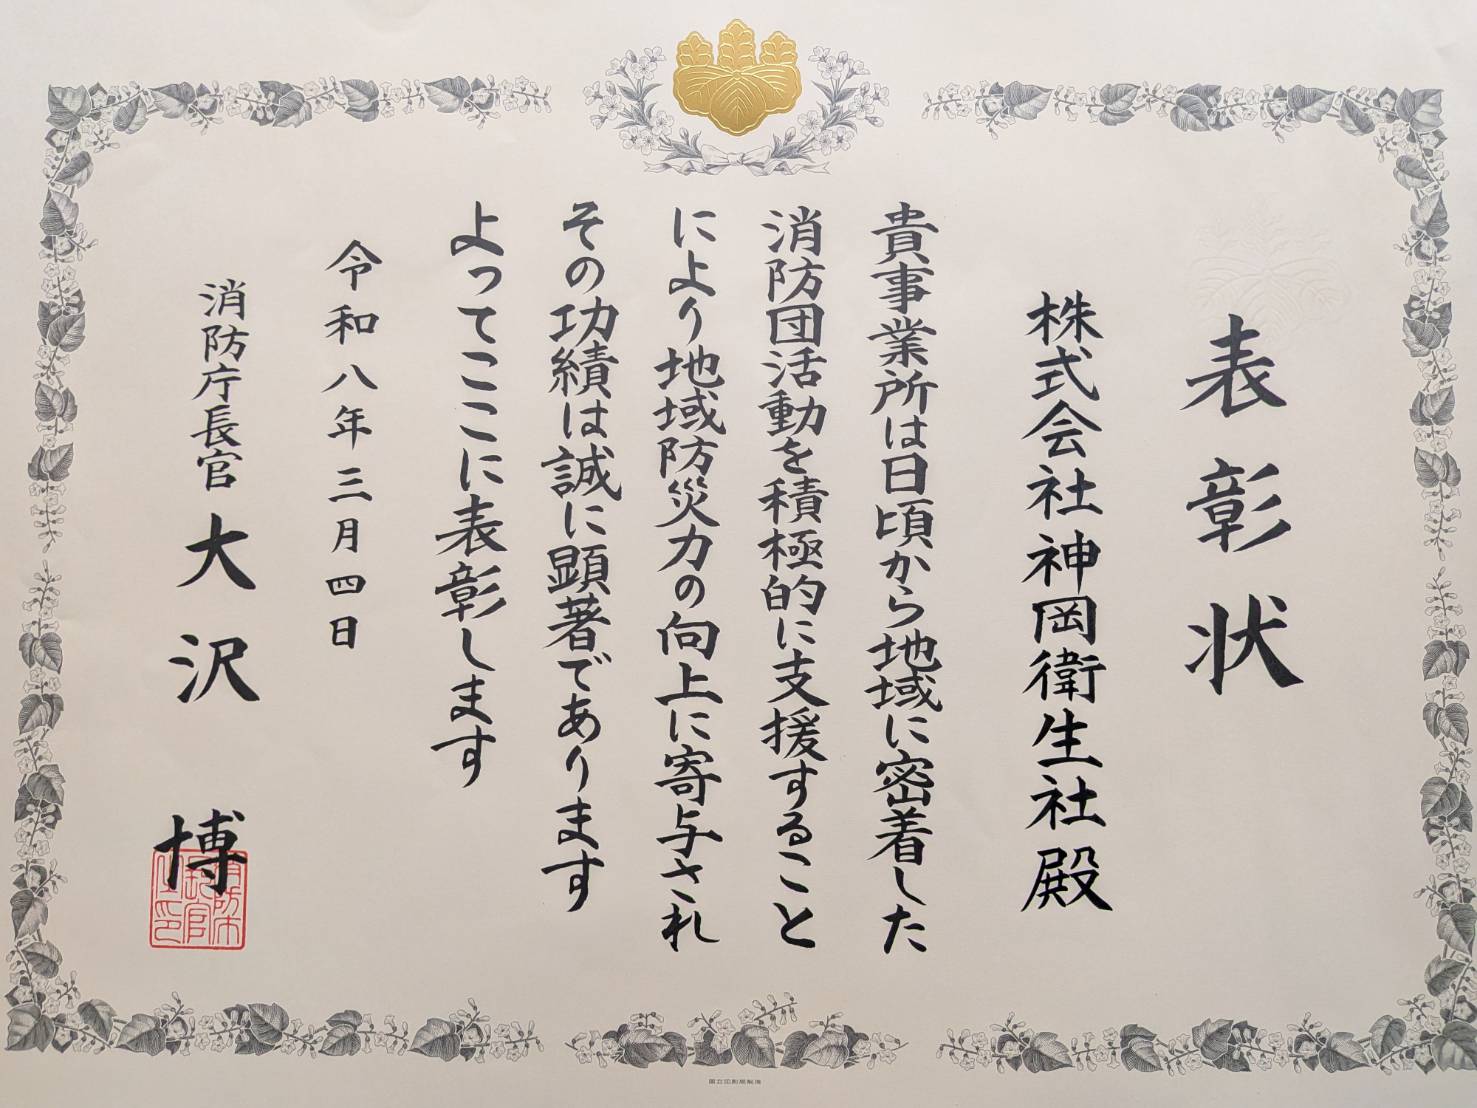 表彰状
株式会社神岡衛生社殿
貴事業所は日頃から地域に密着した
消防団活動を積極的に支援すること
により地域防災力の向上に寄与され
その功績は誠に顕著であります
よってここに表彰します
令和八年三月四日
消防庁長官 大沢博
国立印刷局製造